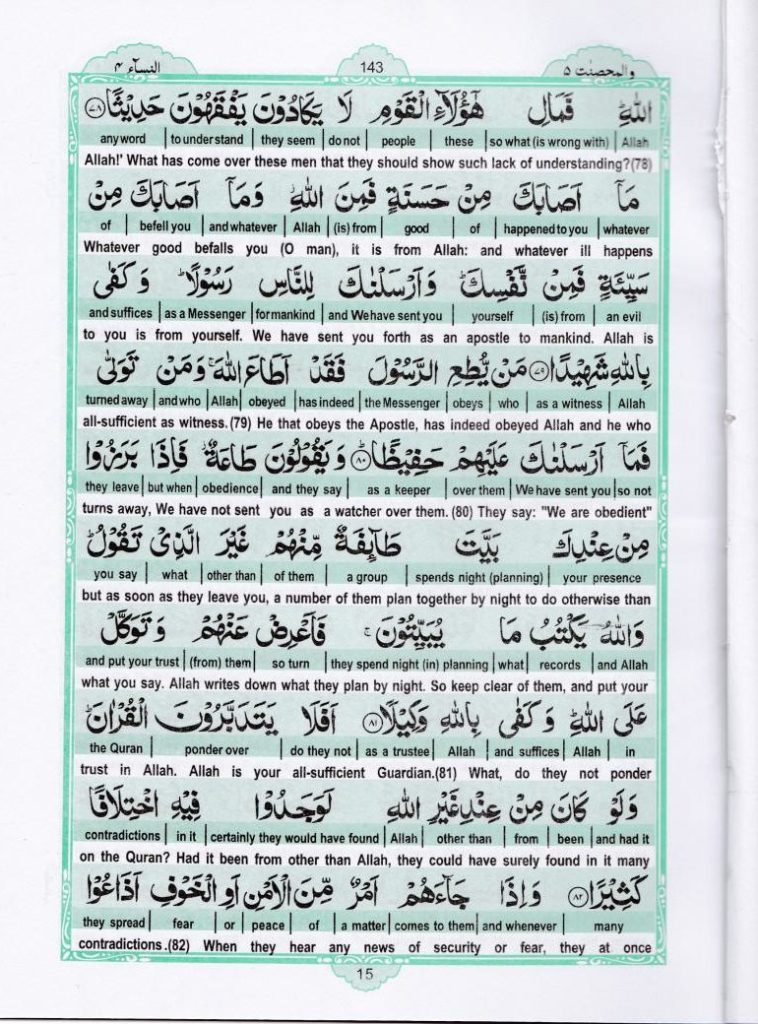 النسآء ۴ 143 والمحصنت ۵
اللّٰهِ ؕ فَمَالِ هٰۤؤُلَآءِ الْقَوْمِ لَا يَكَادُوْنَ يَفْقَهُوْنَ حَدِيْثًا ﴿۷۸﴾
any word | to understand | they seem | do not | people | these | so what (is wrong with) | Allah
Allah!' What has come over these men that they should show such lack of understanding?(78)
مَاۤ اَصَابَكَ مِنْ حَسَنَةٍ فَمِنَ اللّٰهِ ؗ وَمَاۤ اَصَابَكَ مِنْ
of | befell you | and whatever | Allah | (is) from | good | of | happened to you | whatever
Whatever good befalls you (O man), it is from Allah: and whatever ill happens
سَيِّئَةٍ فَمِنْ نَّفْسِكَ ؕ وَاَرْسَلْنٰكَ لِلنَّاسِ رَسُوْلًا ؕ وَكَفٰى
and suffices | as a Messenger | for mankind | and We have sent you | yourself | (is) from | an evil
to you is from yourself. We have sent you forth as an apostle to mankind. Allah is
بِاللّٰهِ شَهِيْدًا ﴿۷۹﴾ مَنْ يُّطِعِ الرَّسُوْلَ فَقَدْ اَطَاعَ اللّٰهَ ۚ وَمَنْ تَوَلّٰى
turned away | and who | Allah | obeyed | has indeed | the Messenger | obeys | who | as a witness | Allah
all-sufficient as witness.(79) He that obeys the Apostle, has indeed obeyed Allah and he who
فَمَاۤ اَرْسَلْنٰكَ عَلَيْهِمْ حَفِيْظًا ﴿۸۰﴾ وَيَقُوْلُوْنَ طَاعَةٌ ؗ فَاِذَا بَرَزُوْا
they leave | but when | obedience | and they say | as a keeper | over them | We have sent you | so not
turns away, We have not sent you as a watcher over them. (80) They say: "We are obedient"
مِنْ عِنْدِكَ بَيَّتَ طَآئِفَةٌ مِّنْهُمْ غَيْرَ الَّذِيْ تَقُوْلُ ؕ
you say | what | other than | of them | a group | spends night (planning) | your presence
but as soon as they leave you, a number of them plan together by night to do otherwise than
وَاللّٰهُ يَكْتُبُ مَا يُبَيِّتُوْنَ ۚ فَاَعْرِضْ عَنْهُمْ وَتَوَكَّلْ
and put your trust | (from) them | so turn | they spend night (in) planning | what | records | and Allah
what you say. Allah writes down what they plan by night. So keep clear of them, and put your
عَلَى اللّٰهِ ؕ وَكَفٰى بِاللّٰهِ وَكِيْلًا ﴿۸۱﴾ اَفَلَا يَتَدَبَّرُوْنَ الْقُرْاٰنَ ؕ
the Quran | ponder over | do they not | as a trustee | Allah | and suffices | Allah | in
trust in Allah. Allah is your all-sufficient Guardian.(81) What, do they not ponder
وَلَوْ كَانَ مِنْ عِنْدِ غَيْرِ اللّٰهِ لَوَجَدُوْا فِيْهِ اخْتِلَافًا
contradictions | in it | certainly they would have found | Allah | other than | from | been | and had it
on the Quran? Had it been from other than Allah, they could have surely found in it many
كَثِيْرًا ﴿۸۲﴾ وَاِذَا جَآءَهُمْ اَمْرٌ مِّنَ الْاَمْنِ اَوِ الْخَوْفِ اَذَاعُوْا
they spread | fear | or | peace | of | a matter | comes to them | and whenever | many
contradictions.(82) When they hear any news of security or fear, they at once
15